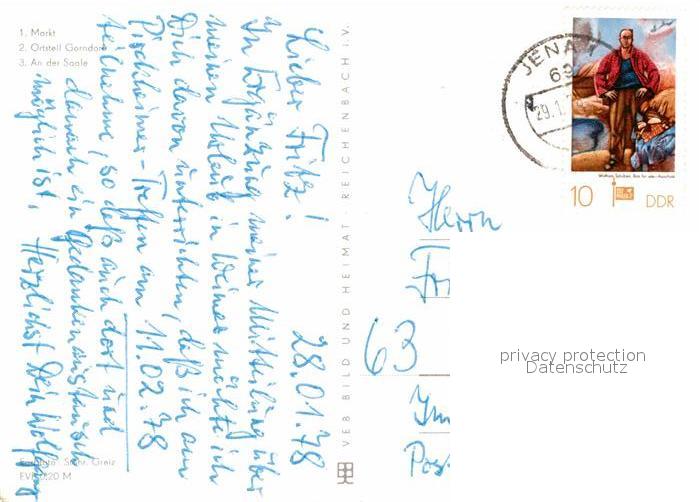 1. Markt
2. Ortsteil Gorndorf
3. An der Saale
Lieber Fritz! 28.01.78
In Ergänzung meiner Mitteilung über
meinen Urlaub in Weimar möchte ich
Dich davon unterrichten, daß ich am
Pirckheimer-Treffen am 11.02.78
teilnehme, so daß auch dort und
danach ein Gedankenaustausch
möglich ist. Herzlichst Dein Wolfgang
Foto: Greiz
EVP 0,20 M
VEB BILD UND HEIMAT · REICHENBACH I. V.
JENA
69
29.1.
10 DDR
Herrn
63
privacy protection
Datenschutz